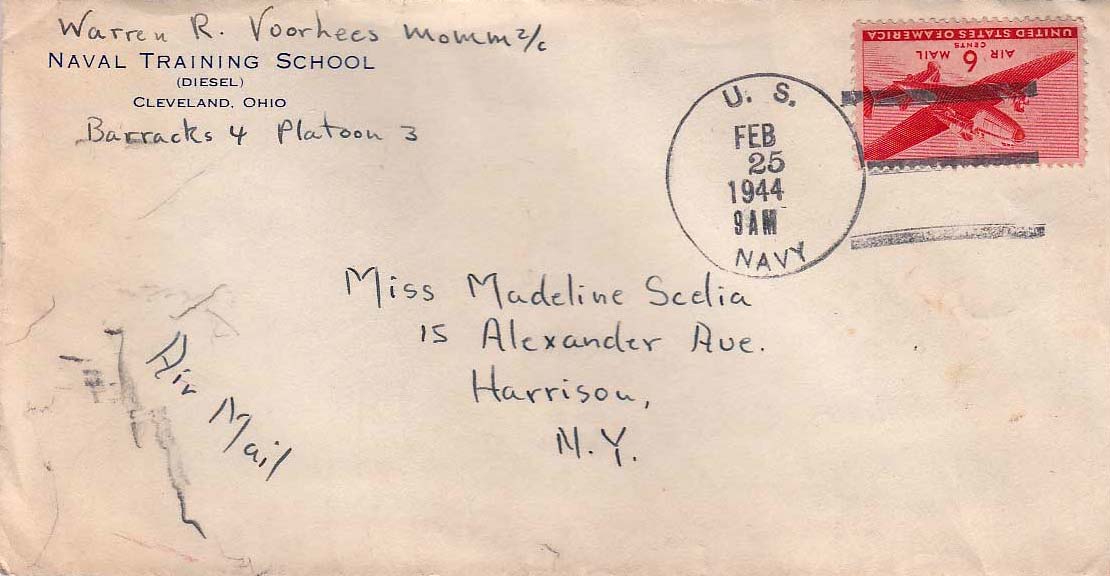 Warren R. Voorhees MoMM 2/c
NAVAL TRAINING SCHOOL
(DIESEL)
CLEVELAND, OHIO
Barracks 4 Platoon 3
UNITED STATES OF AMERICA
6 CENTS
AIR MAIL
U. S.
FEB
25
1944
9 AM
NAVY
Miss Madeline Scelia
15 Alexander Ave.
Harrison,
N.Y.
Air Mail